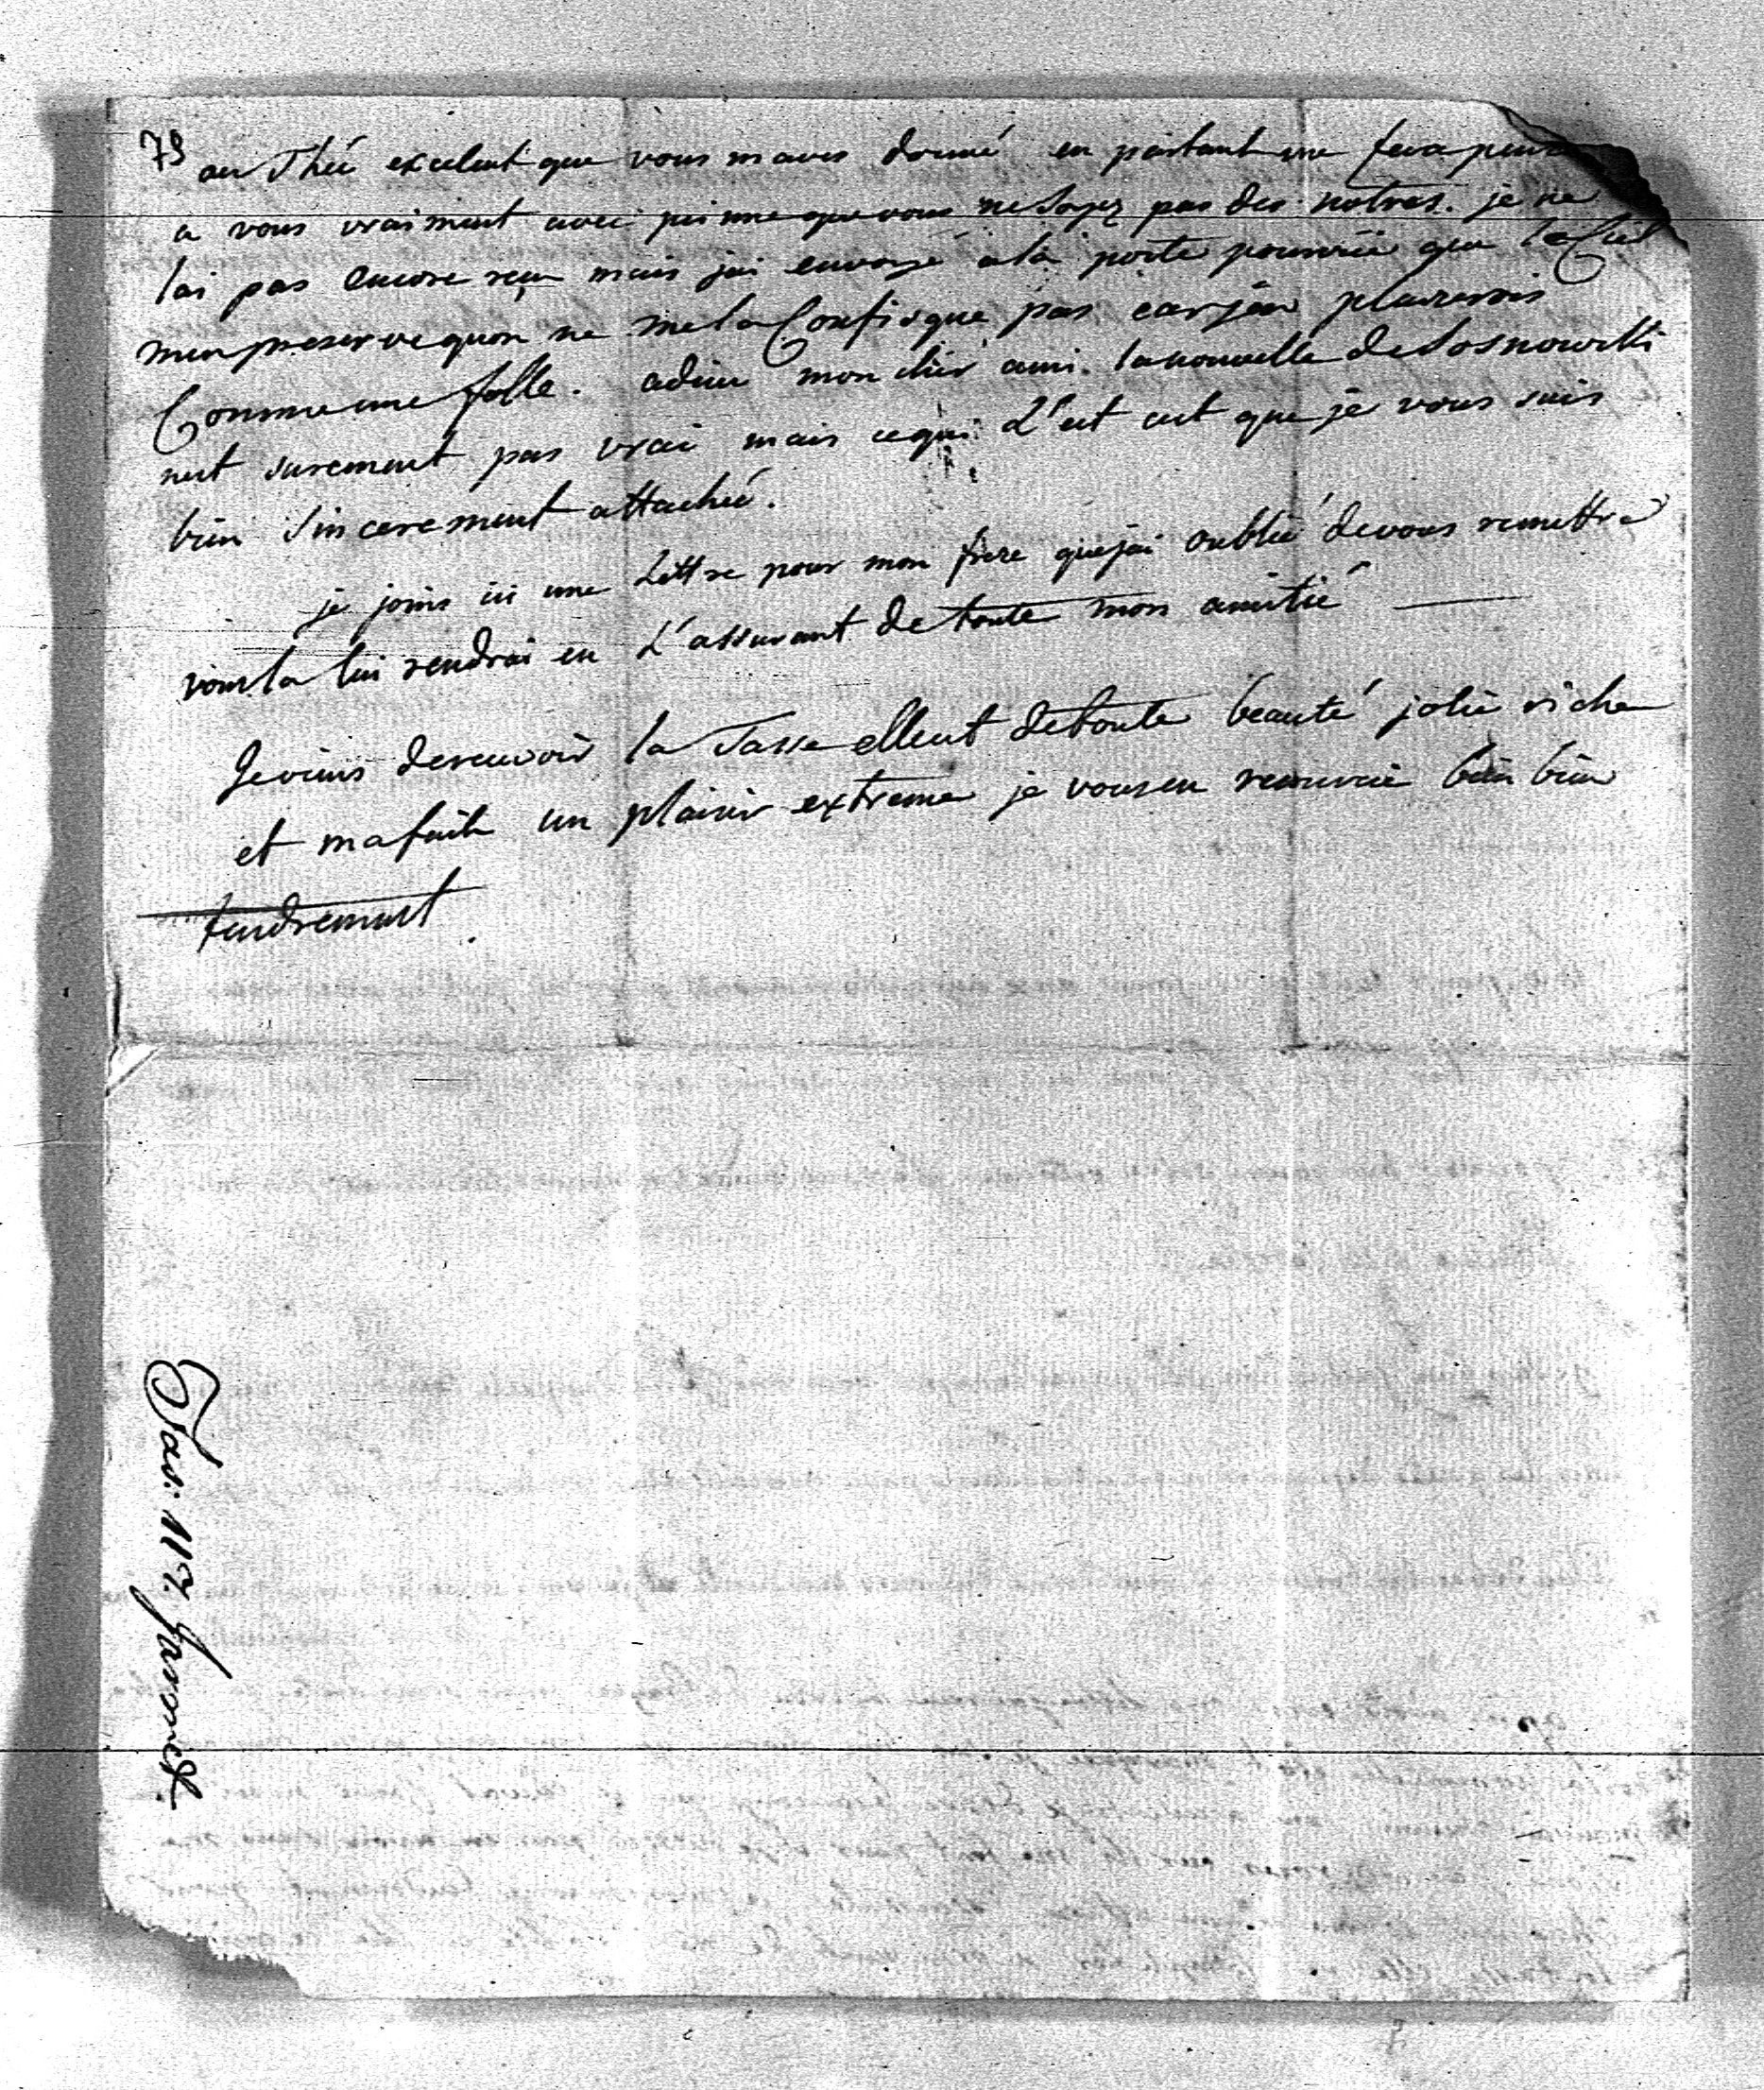 79
au Thé excelent que vous maves donné en partant me fera penser
a vous vraiment avec peinne que vous ne soyez pas des notres. je ne
lai pas encore reçu mais jai envoyé a la porte pourvüe que le Ciel
men preserve quon ne me la Confisque pas car jen pleurerois
Comme une folle. adieu mon cher ami. la nouvelle de Sosnowski
nest surement pas vrai mais ce qui L'est cest que je vous suis
bien sincerement attachée.
je joins ici une Lettre pour mon frere que jai oublié de vous remettre
vous la lui rendrai en L'assurant de toute mon amitié
Je viens de recevoir la Tasse elle est de toute beauté jolie riche
et ma fait un plaisir extreme je vous en remercie bien bien
tendrement
Fas: 117.